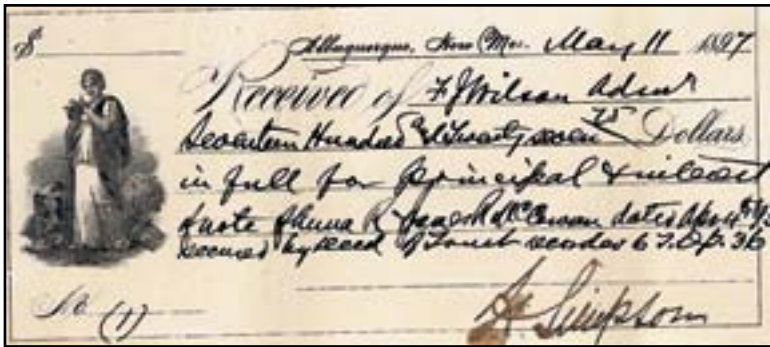 $
Albuquerque, New Mex. May 11 1897
Received of F J Wilson Admr
Seventeen Hundred & Twenty seven 75 Dollars
in full for principal & interest
note Anna R & dated Apr 4th
secured by deed of Trust recorded
No. (1)
Simpson